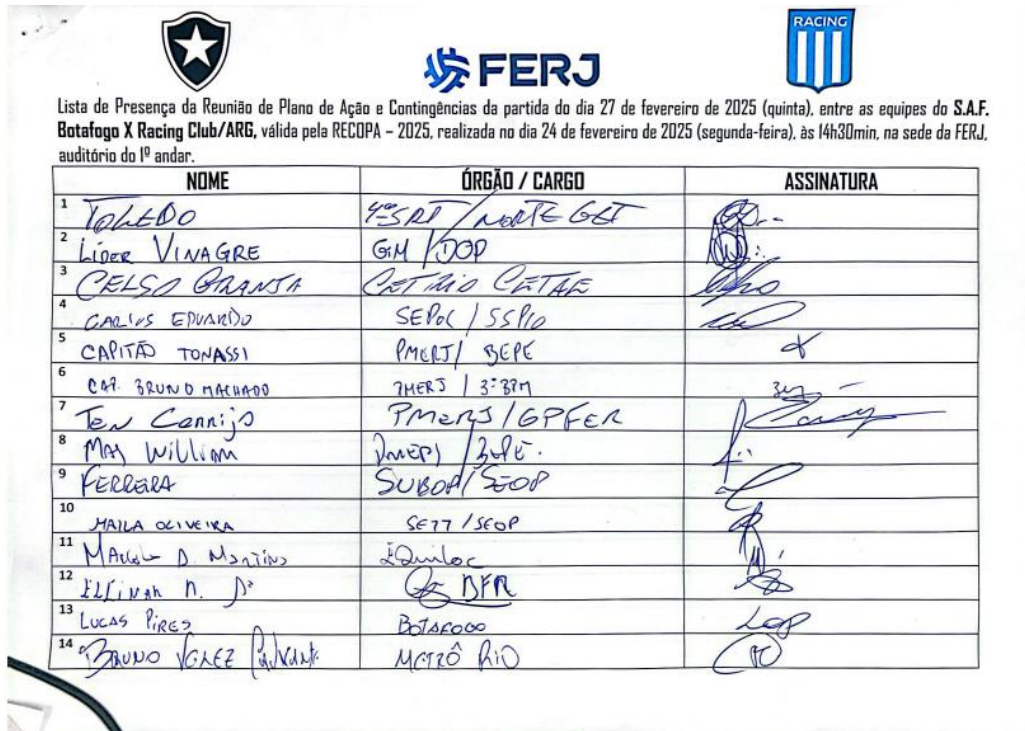 RACING
FERJ
Lista de Presença da Reunião de Plano de Ação e Contingências da partida do dia 27 de fevereiro de 2025 (quinta), entre as equipes do S.A.F.
Botafogo X Racing Club/ARG, válida pela RECOPA – 2025, realizada no dia 24 de fevereiro de 2025 (segunda-feira), às 14h30min, na sede da FERJ,
auditório do 1º andar.
NOME ÓRGÃO / CARGO ASSINATURA
1 TOLEDO / NORTE GET
2 LÍDER VINAGRE GM / DOP
3 CELSO GRANJA CET RIO
4 CARLOS EDUARDO SEPOL / SSPIO
5 CAPITÃO TONASSI PMERJ / BEPE
6 CAP. BRUNO MACHADO PMERJ / 3º BPM
7 TEN PMERJ / GPFER
8 MAJ William PMERJ / BEPE.
9 FERREIRA SUBOP / SEOP
10 MAILA OLIVEIRA / SEOP
11 D. Martins Equiloc
12 BFR
13 LUCAS PIRES BOTAFOGO
14 BRUNO METRÔ RIO